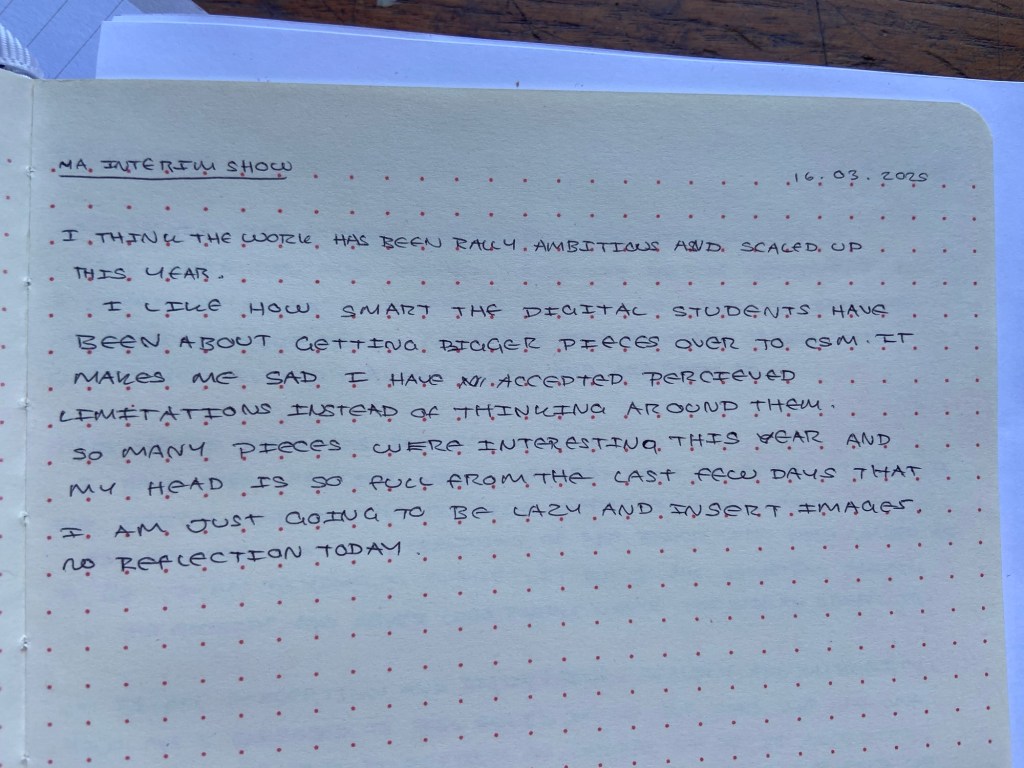 MA INTERIM SHOW
16.03.2025
I THINK THE WORK HAS BEEN RALLY AMBITIOUS AND SCALED UP
THIS YEAR.
I LIKE HOW SMART THE DIGITAL STUDENTS HAVE
BEEN ABOUT GETTING BIGGER PIECES OVER TO CSM. IT
MAKES ME SAD I HAVE ACCEPTED PERCIEVED
LIMITATIONS INSTEAD OF THINKING AROUND THEM.
SO MANY PIECES WERE INTERESTING THIS YEAR AND
MY HEAD IS SO FULL FROM THE LAST FEW DAYS THAT
I AM JUST GOING TO BE LAZY AND INSERT IMAGES.
NO REFLECTION TODAY.